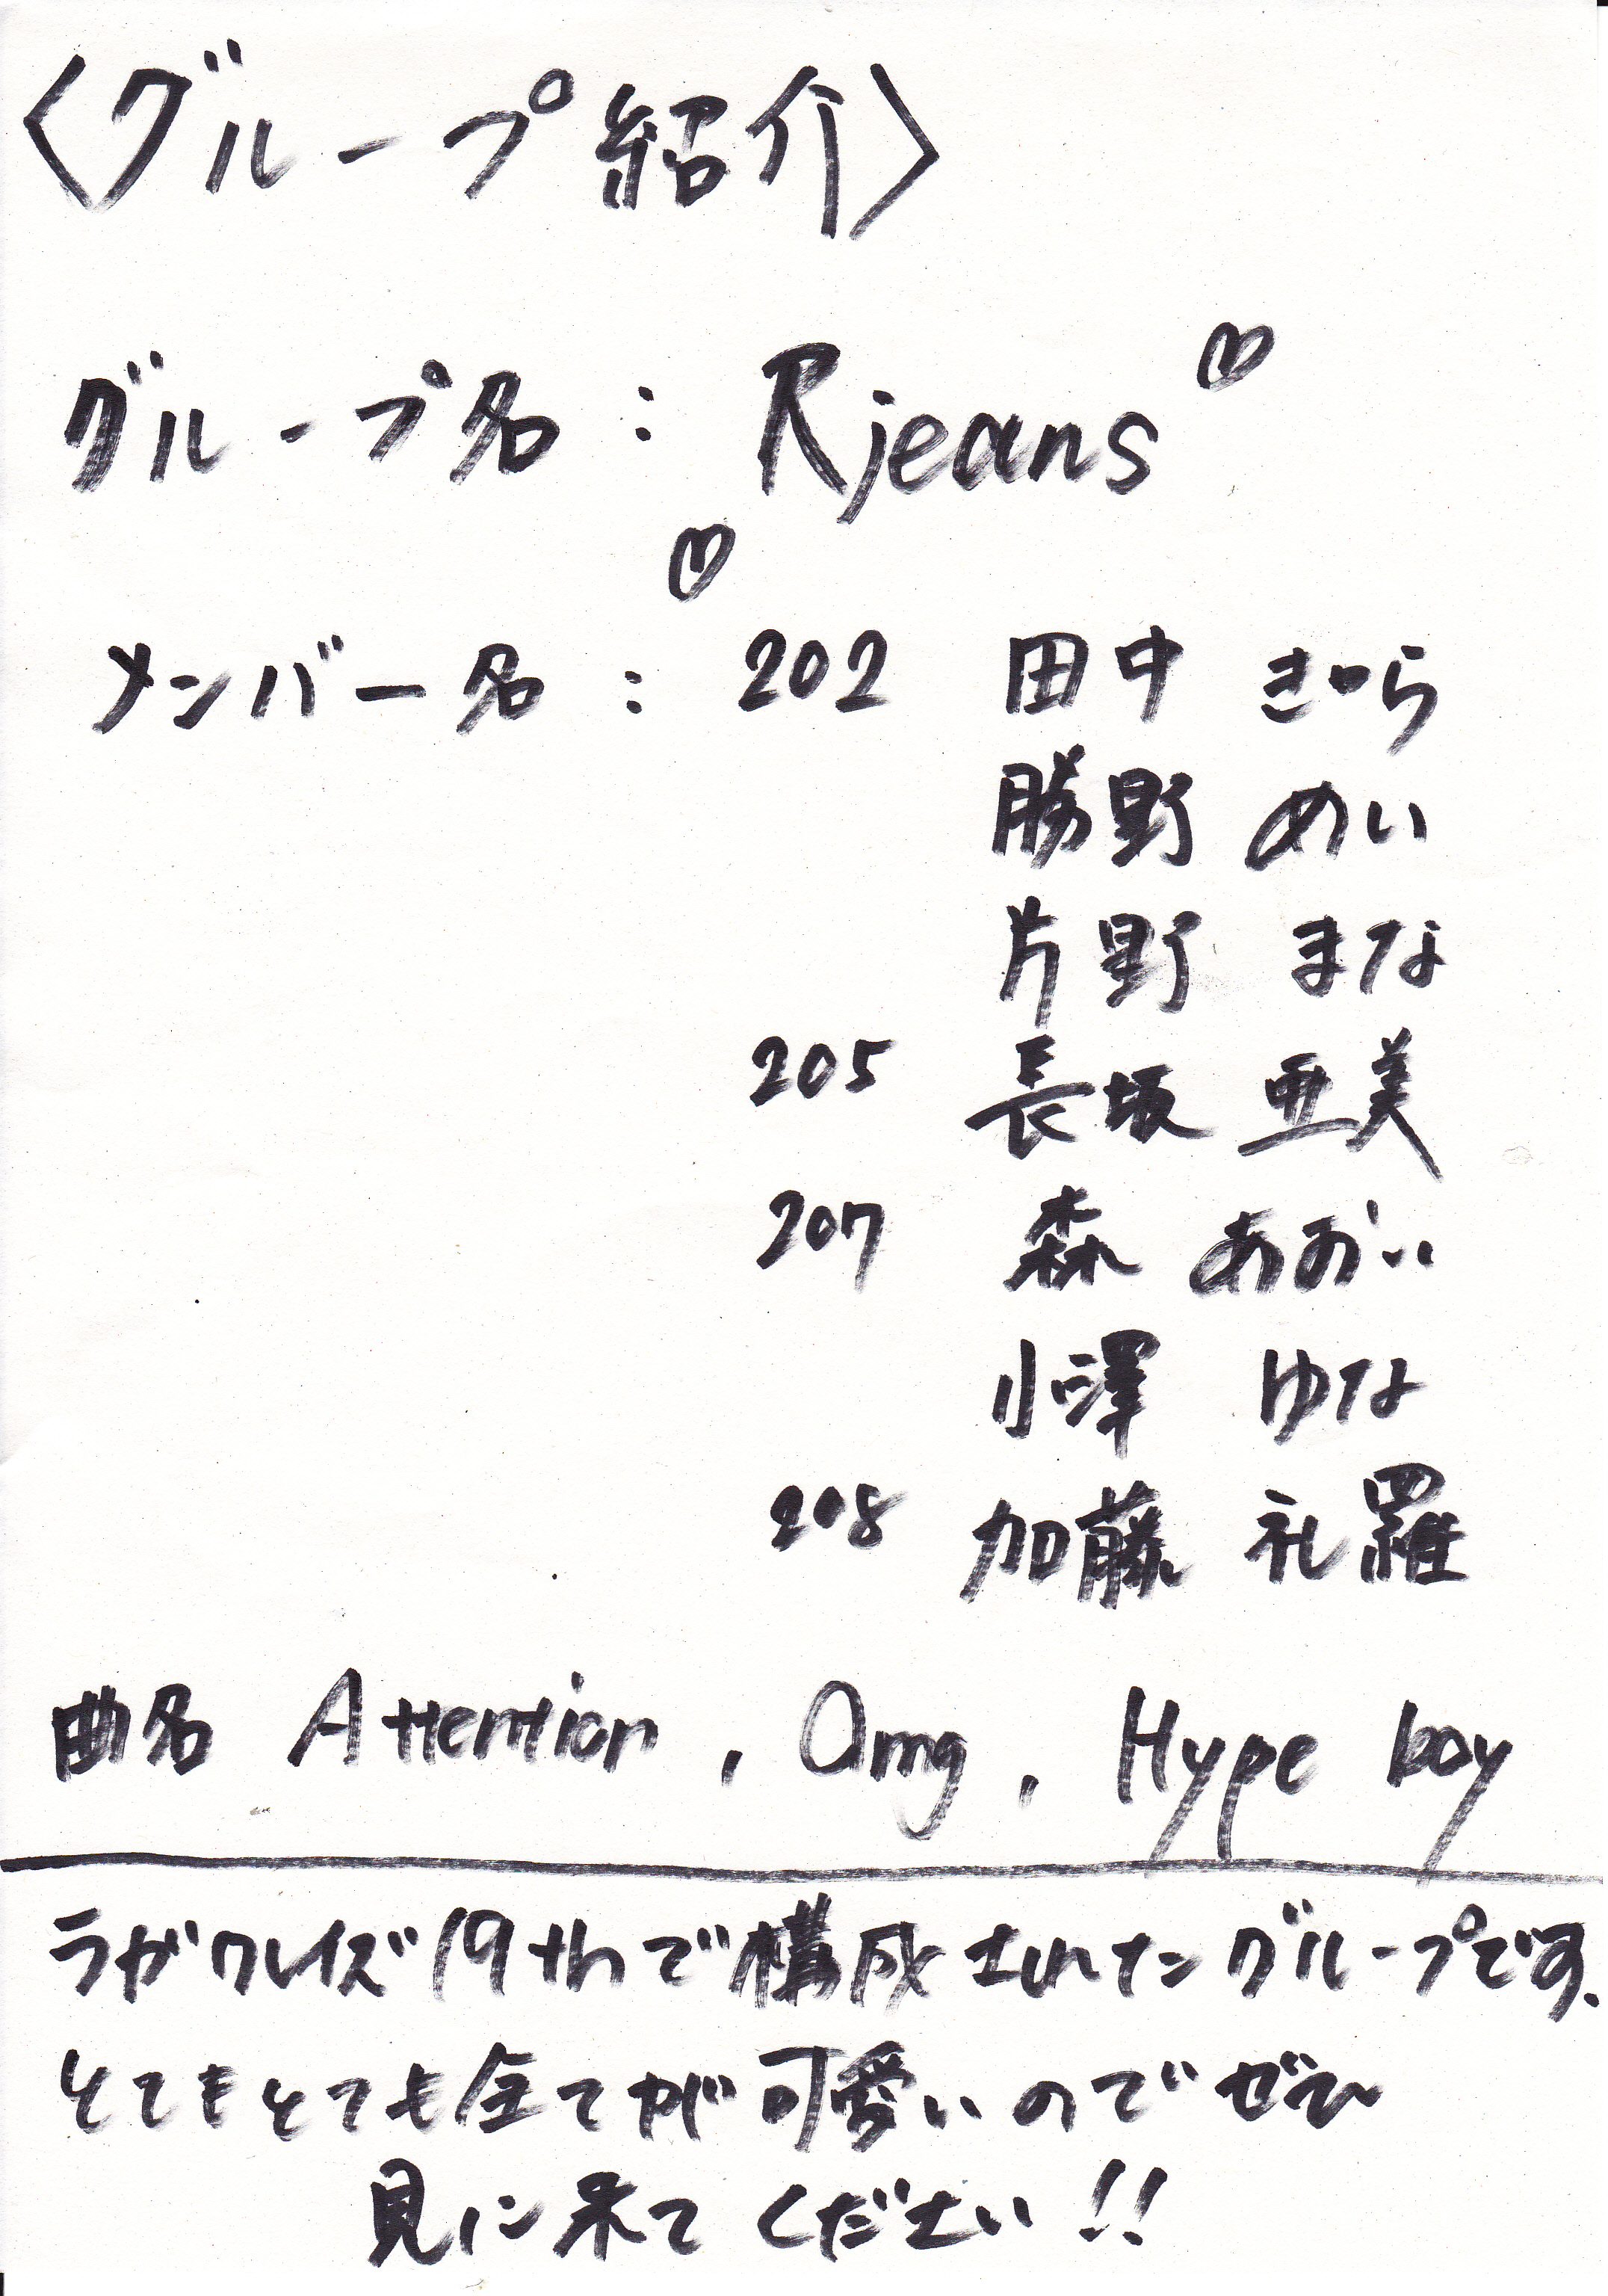 〈グループ紹介〉
グループ名 : Rjeans♡
♡
メンバー名 : 202 田中 きらら
勝野 めい
片野 まな
205 長坂 亜美
207 森 あおい
小澤 ゆな
208 加藤 礼羅
曲名 Attention , Omg , Hype boy
ラガクレイズ19thで構成されたグループです.
とてもとても全てが可愛いのでぜひ
見に来てください!!